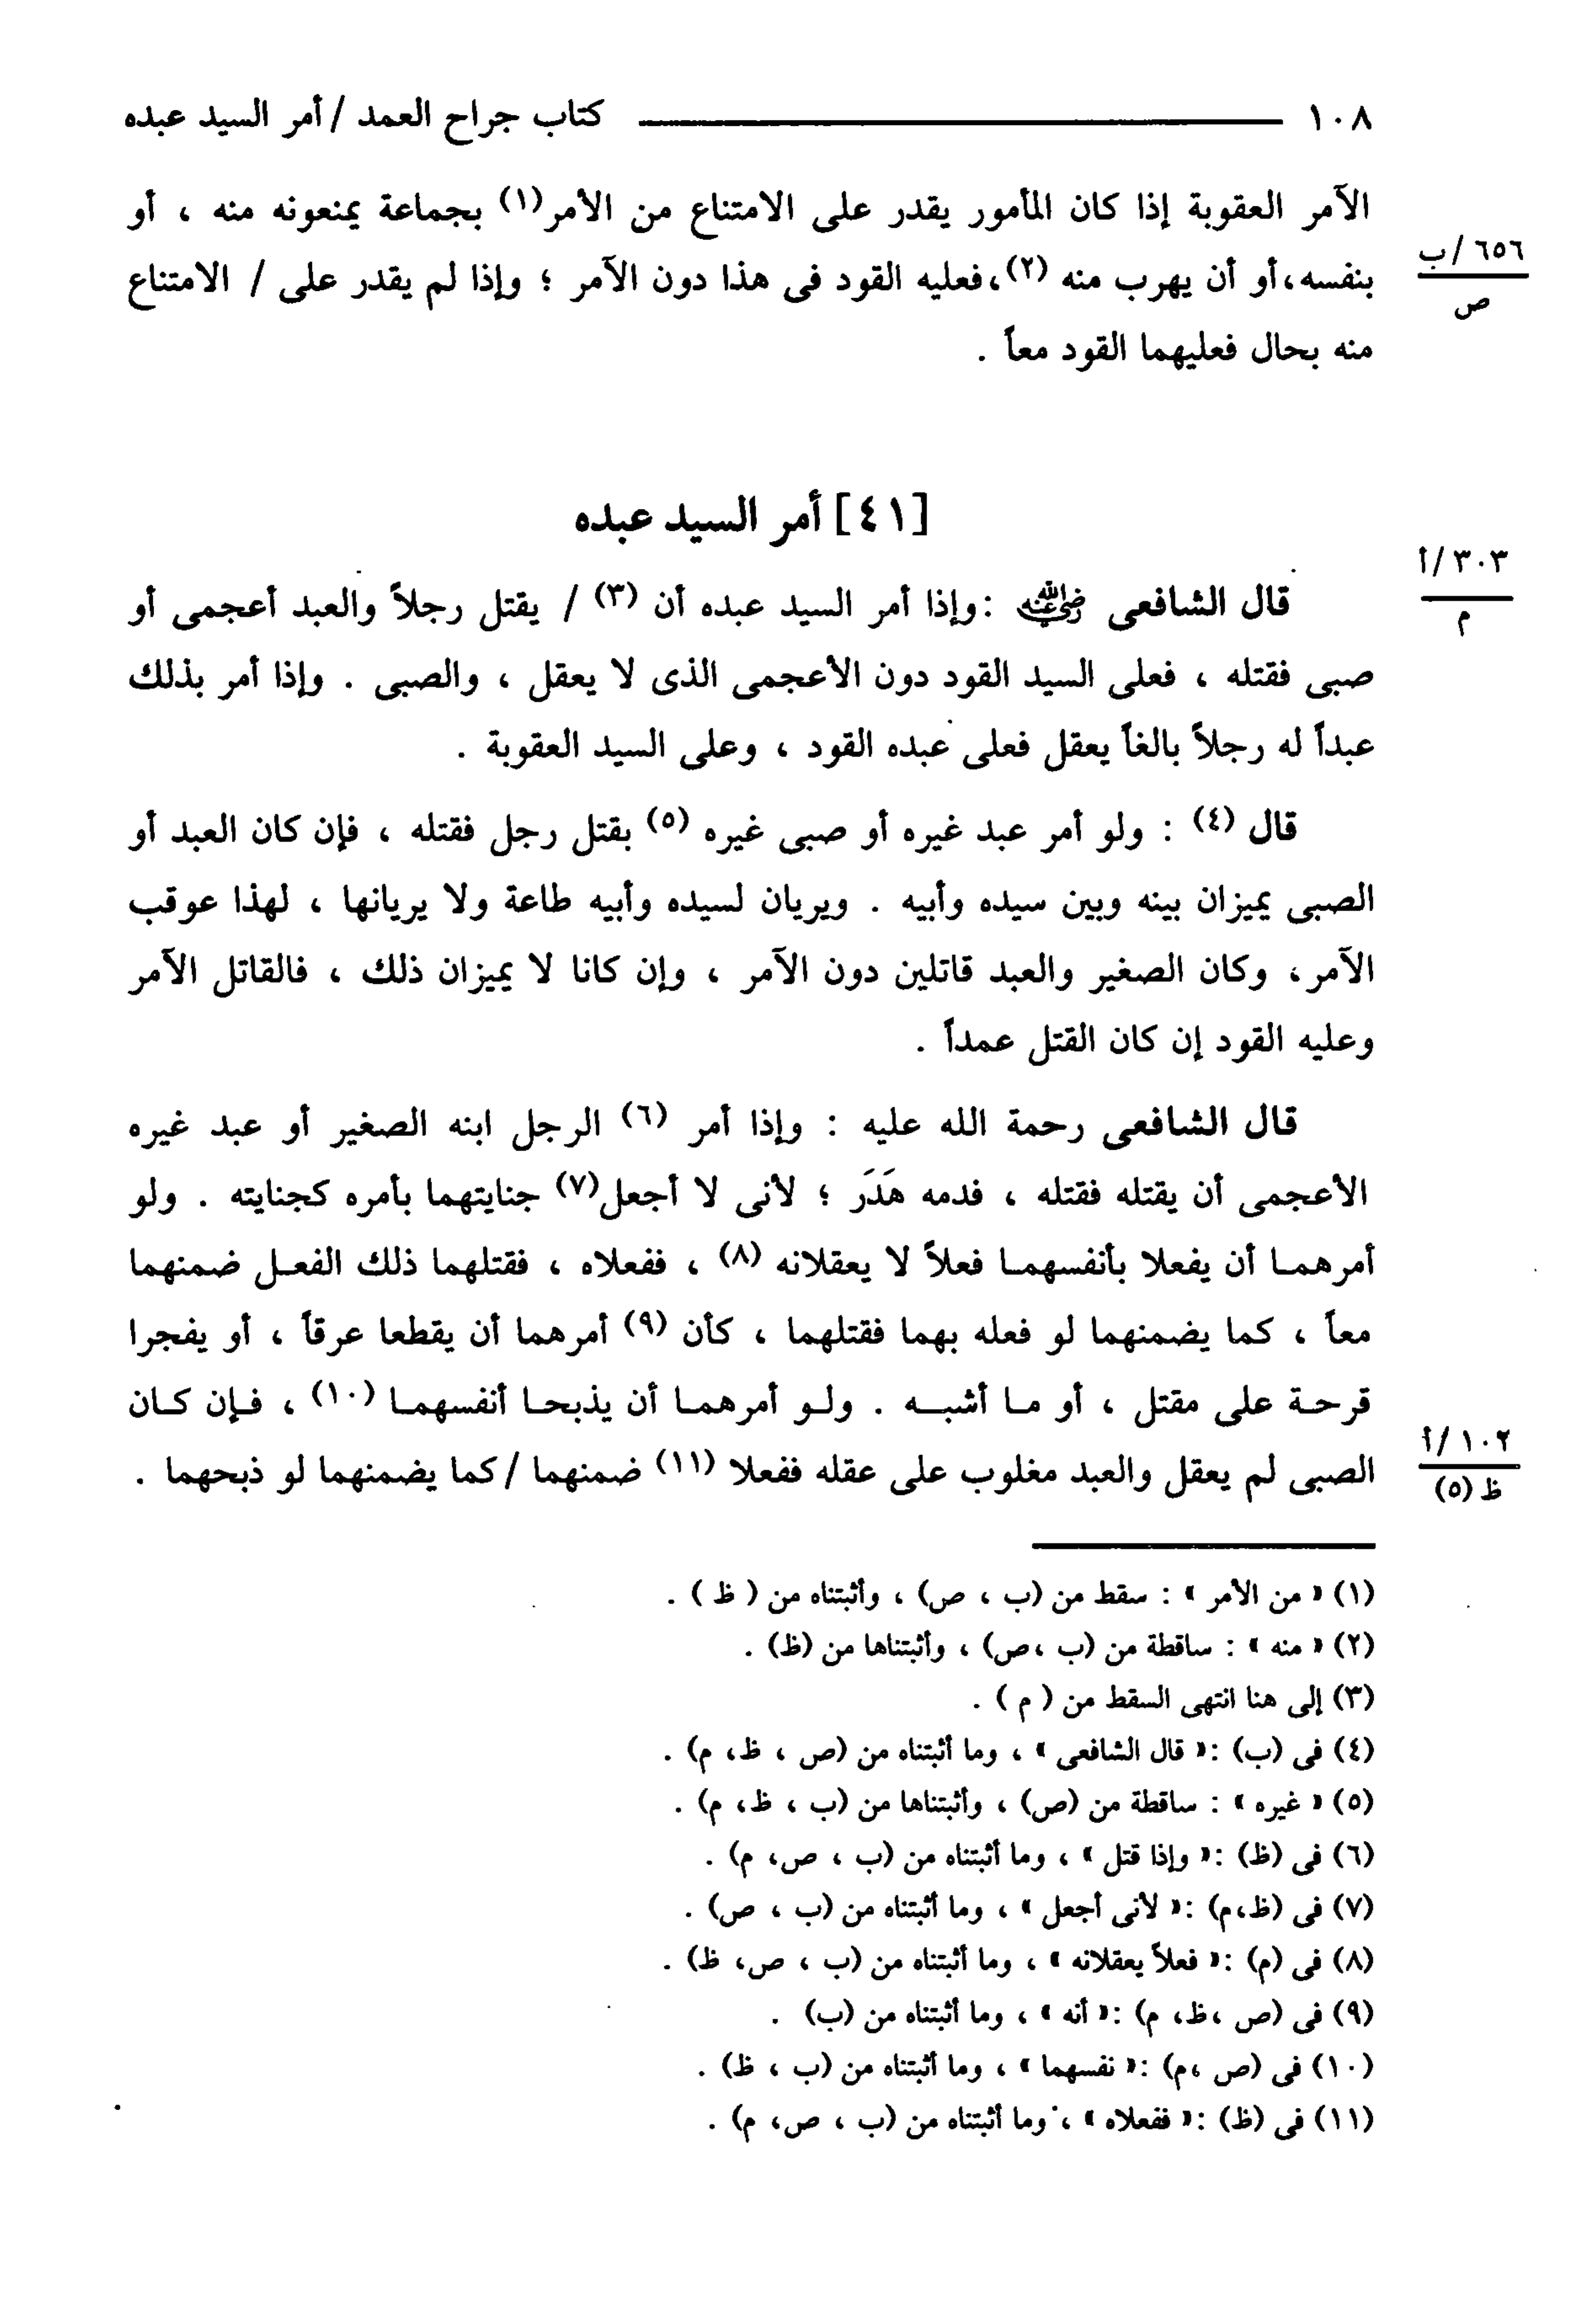 ١٠٨ كتاب جراح العمد / أمر السيد عبده
الآمر العقوبة إذا كان المأمور يقدر على الامتناع من الأمر(١) بجماعة يمنعونه منه ، أو
٦٥٦/ب
ص
بنفسه،أو أن يهرب منه (٢)،فعليه القود فى هذا دون الآمر ؛ وإذا لم يقدر على / الامتناع
منه بحال فعليهما القود معاً .
[٤١] أمر السيد عبده
٣٠٣/أ
م
قال الشافعى رضي الله عنه : وإذا أمر السيد عبده أن (٣) / يقتل رجلاً والعبد أعجمى أو
صبى فقتله ، فعلى السيد القود دون الأعجمى الذى لا يعقل ، والصبى . وإذا أمر بذلك
عبداً له رجلاً بالغاً يعقل فعلى عبده القود ، وعلى السيد العقوبة .
قال (٤) : ولو أمر عبد غيره أو صبى غيره (٥) بقتل رجل فقتله ، فإن كان العبد أو
الصبى يميزان بينه وبين سيده وأبيه . ويريان لسيده وأبيه طاعة ولا يريانها ، لهذا عوقب
الآمر، وكان الصغير والعبد قاتلين دون الآمر ، وإن كانا لا يميزان ذلك ، فالقاتل الآمر
وعليه القود إن كان القتل عمداً .
قال الشافعى رحمة الله عليه : وإذا أمر (٦) الرجل ابنه الصغير أو عبد غيره
الأعجمى أن يقتله فقتله ، فدمه هَدَر ؛ لأنى لا أجعل(٧) جنايتهما بأمره كجنايته . ولو
أمرهما أن يفعلا بأنفسهما فعلاً لا يعقلانه (٨) ، ففعلاه ، فقتلهما ذلك الفعل ضمنهما
معاً ، كما يضمنهما لو فعله بهما فقتلهما ، كأن (٩) أمرهما أن يقطعا عرقاً ، أو يفجرا
قرحة على مقتل ، أو ما أشبه . ولو أمرهما أن يذبحا أنفسهما (١٠) ، فإن كان
١٠٢/أ
ظ (٥)
الصبى لم يعقل والعبد مغلوب على عقله ففعلا (١١) ضمنهما / كما يضمنهما لو ذبحهما .
(١) « من الأمر » : سقط من (ب ، ص) ، وأثبتناه من ( ظ ) .
(٢) « منه » : ساقطة من (ب ،ص) ، وأثبتناها من (ظ) .
(٣) إلى هنا انتهى السقط من ( م ) .
(٤) فى (ب) :« قال الشافعى » ، وما أثبتناه من (ص ، ظ، م) .
(٥) « غيره » : ساقطة من (ص) ، وأثبتناها من (ب ، ظ، م) .
(٦) فى (ظ) :« وإذا قتل » ، وما أثبتناه من (ب ، ص، م) .
(٧) فى (ظ،م) :« لأنى أجعل » ، وما أثبتناه من (ب ، ص) .
(٨) فى (م) :« فعلاً يعقلانه » ، وما أثبتناه من (ب ، ص، ظ) .
(٩) فى (ص ،ظ، م) :« أنه » ، وما أثبتناه من (ب) .
(١٠) فى (ص ،م) :« نفسهما » ، وما أثبتناه من (ب ، ظ) .
(١١) فى (ظ) :« ففعلاه » ، وما أثبتناه من (ب ، ص، م) .